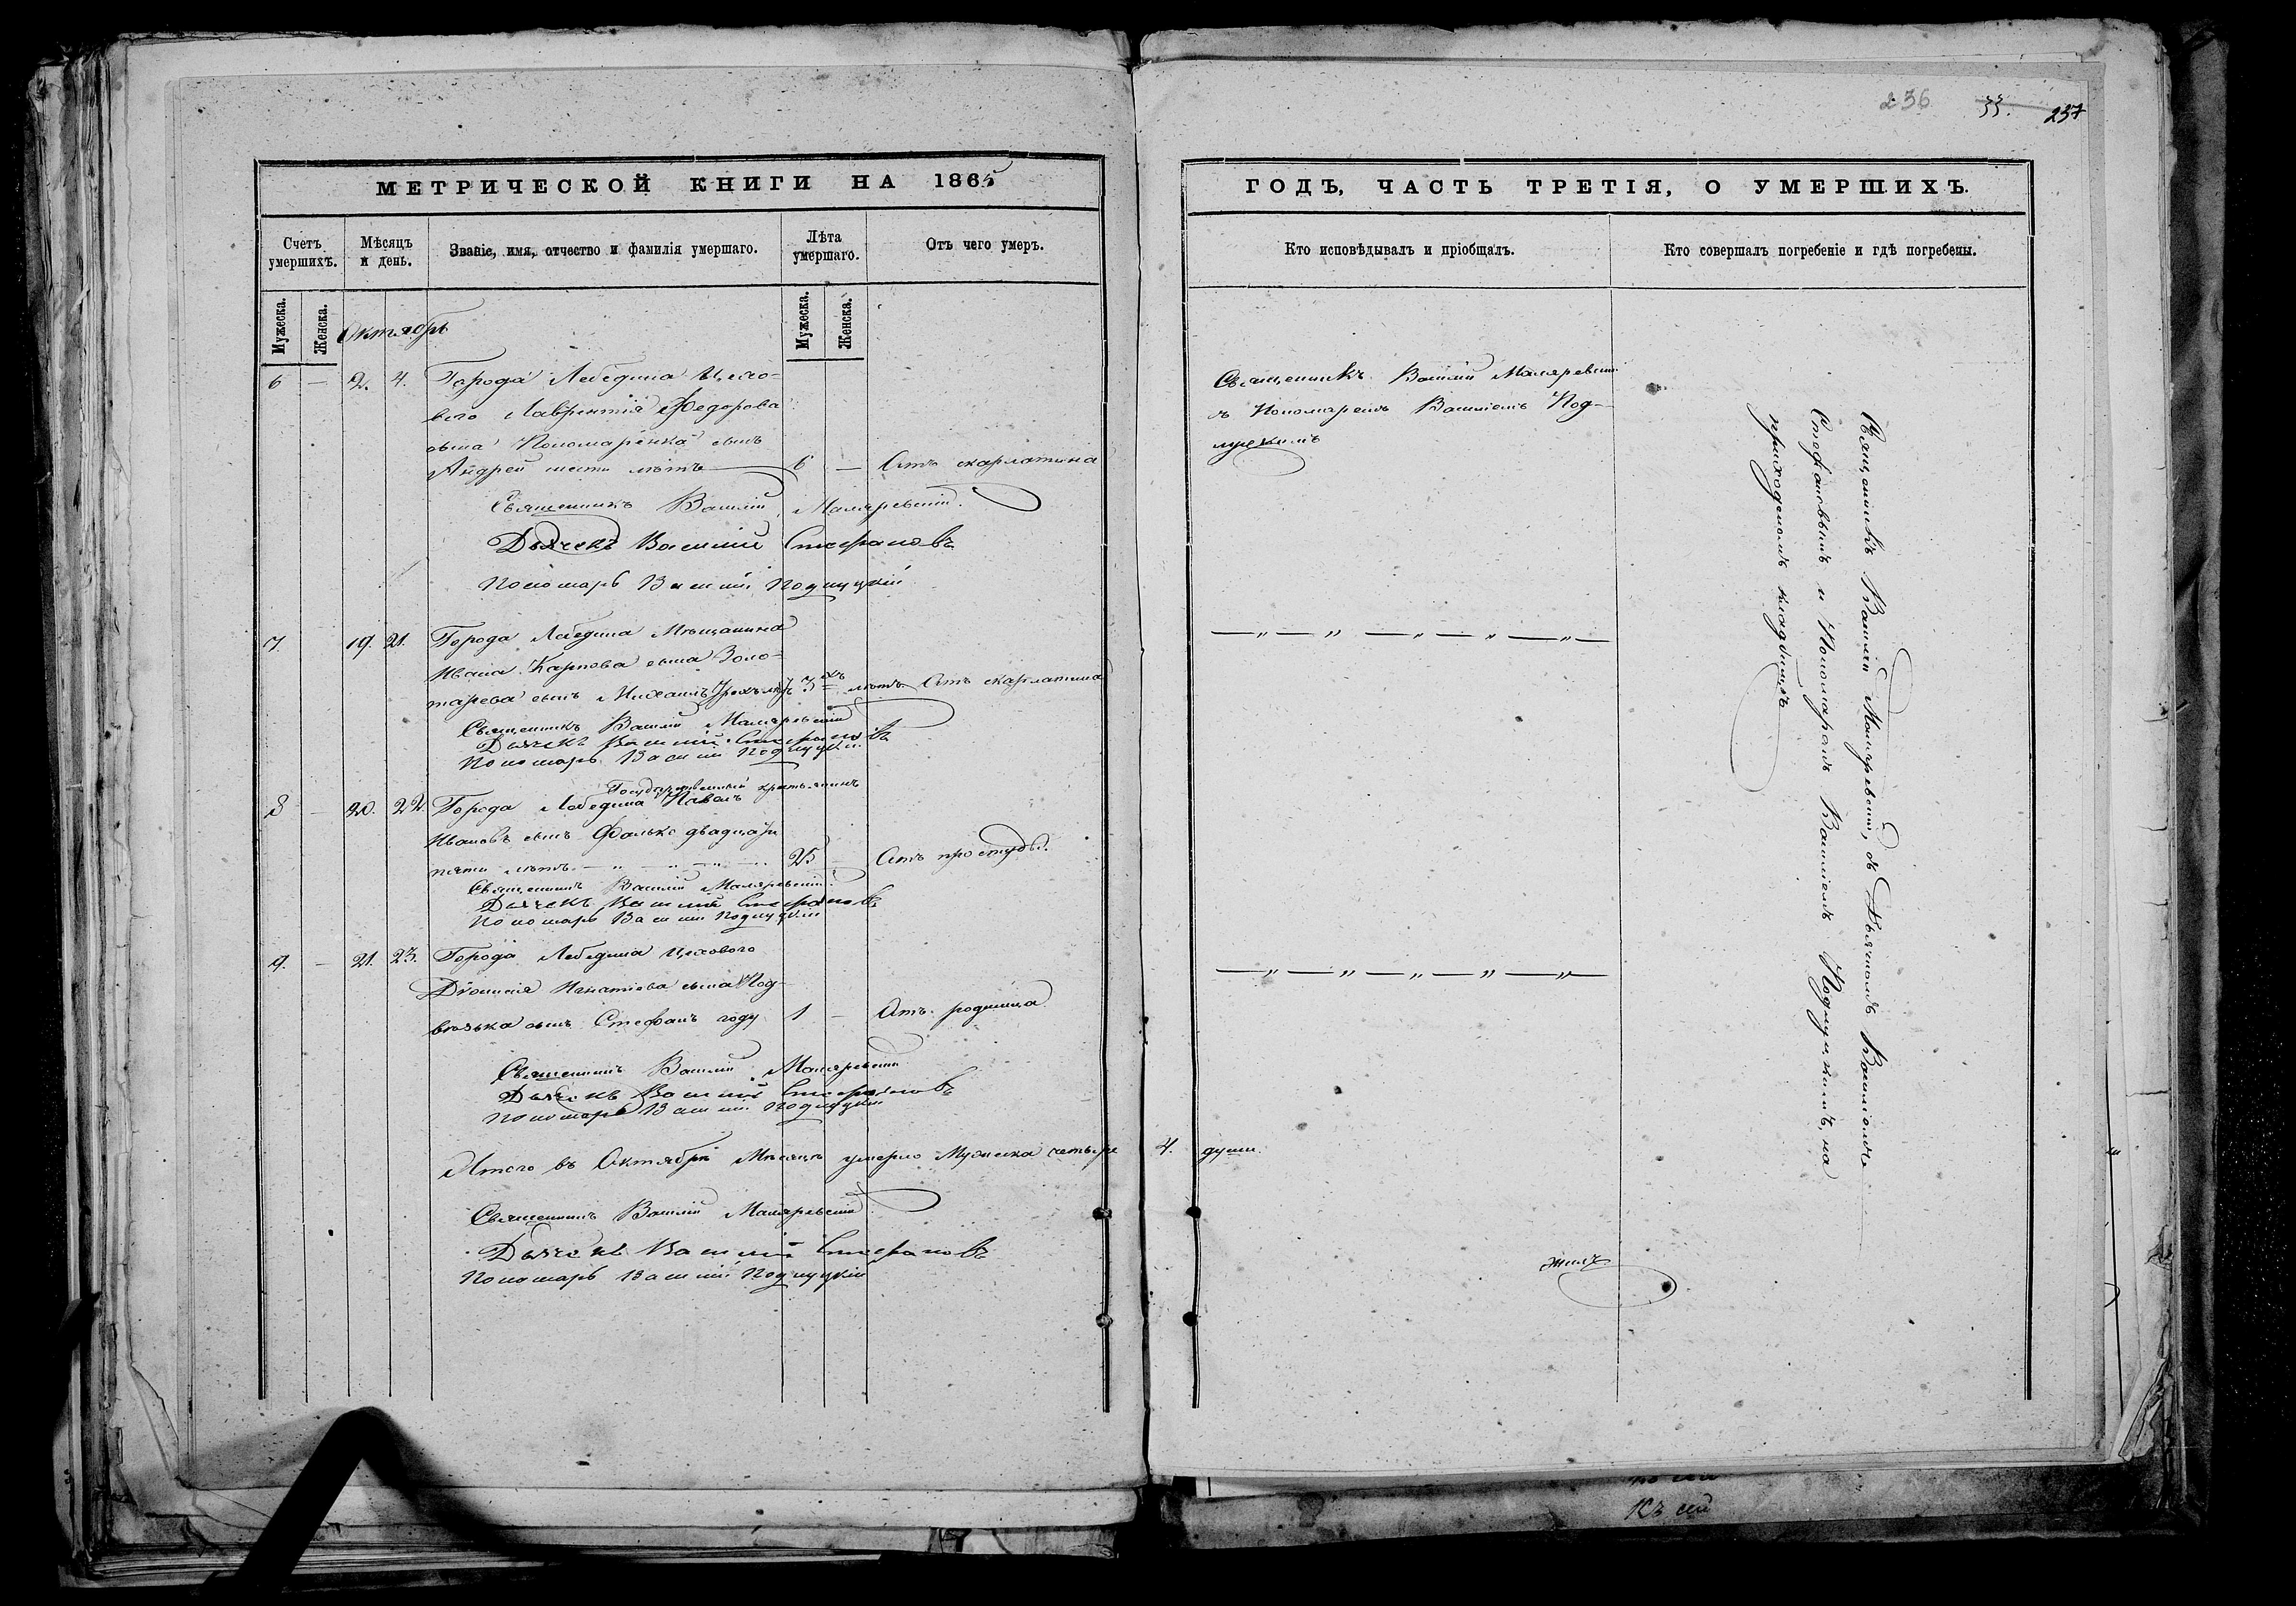 236 33. 237
МЕТРИЧЕСКОЙ КНИГИ НА 1865
Счетъ умершихъ.
Мѣсяцъ и день.
Званіе, имя, отчество и фамилія умершаго.
Лѣта умершаго.
Отъ чего умеръ.
Мужеска. Женска. Мужеска. Женска.
Октябрь
6 — 2. 4. Города Лебедина Цехо-
ваго Лаврентія Федорова
сына Пономаренка сынъ
Андрей шести лѣтъ 6 — Отъ скарлатина
Священникъ Василій Маляревскій.
Дьячекъ Василій Стефановъ
Пономарь Василій Подлуцкій
7. 19. 21. Города Лебедина Мѣщанина
Ивана Карпова сына Золо-
тарева сынъ Михаилъ трехъ лѣтъ 3хъ лѣтъ. Отъ скарлатина
Священникъ Василій Маляревскій
Дьячекъ Василій Стефановъ
Пономарь Василій Подлуцкій
Государственный крестьянинъ
8 — 20. 22. Города Лебедина Павелъ
Ивановъ сынъ Фалько двадцати
пяти лѣтъ — „ — „ — „ — 25 — Отъ простуды.
Священникъ Василій Маляревскій.
Дьячекъ Василій Стефановъ
Пономарь Василій Подлуцкій
9. — 21. 23. Города Лебедина Цеховаго
Діонисія Игнатіева сына Под-
сынъ Стефанъ году 1 — Отъ родимца
Священникъ Василій Маляревскій
Дьячекъ Василій Стефановъ
Пономарь Василій Подлуцкій
Итого въ Октябрѣ Мѣсяцѣ умерло Мужеска четыре 4. души.
Священникъ Василій Маляревскій
Дьячекъ Василій Стефановъ
Пономарь Василій Подлуцкій
ГОДЪ, ЧАСТЬ ТРЕТІЯ, О УМЕРШИХЪ.
Кто исповѣдывалъ и пріобщалъ.
Кто совершалъ погребеніе и гдѣ погребены.
Священникъ Василій Маляревскій
съ Пономаремъ Василіемъ Под-
луцкимъ
— „ — „ — „ — „ — „ —
— „ — „ — „ — „ — „ —
Священникъ Василій Маляревскій, съ Дьячкомъ Василіемъ
Стефановымъ и Пономаремъ Василіемъ Подлуцкимъ, на
приходскомъ кладбищѣ
Къ сей